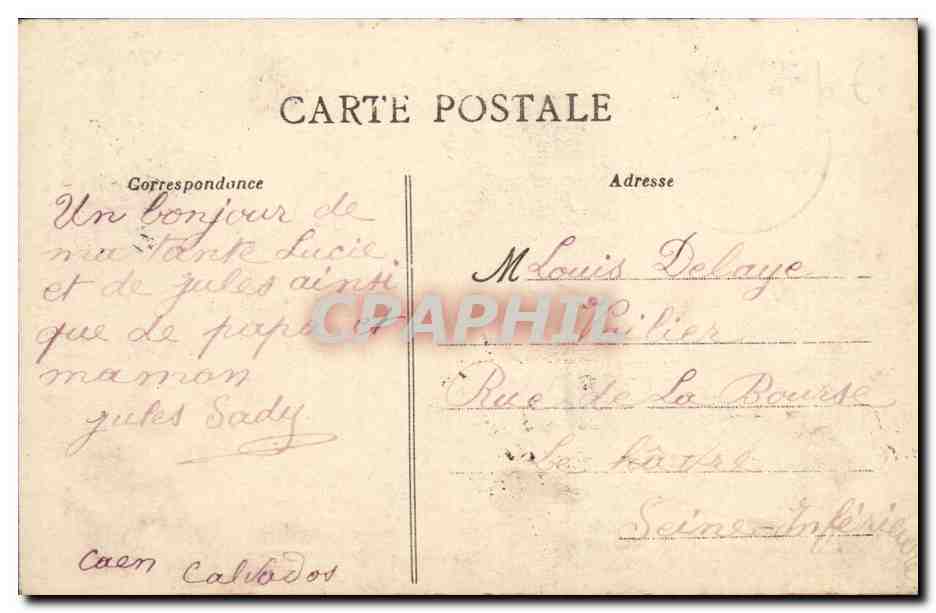 CARTE POSTALE
Correspondance
Un bonjour de
ma tante Lucie
et de jules ainsi
que de papa et
maman
jules Sady
Caen Calvados
Adresse
M Louis Delaye
Rue de La Bourse
Le hâvre
Seine-Inférieure
CPAPHIL